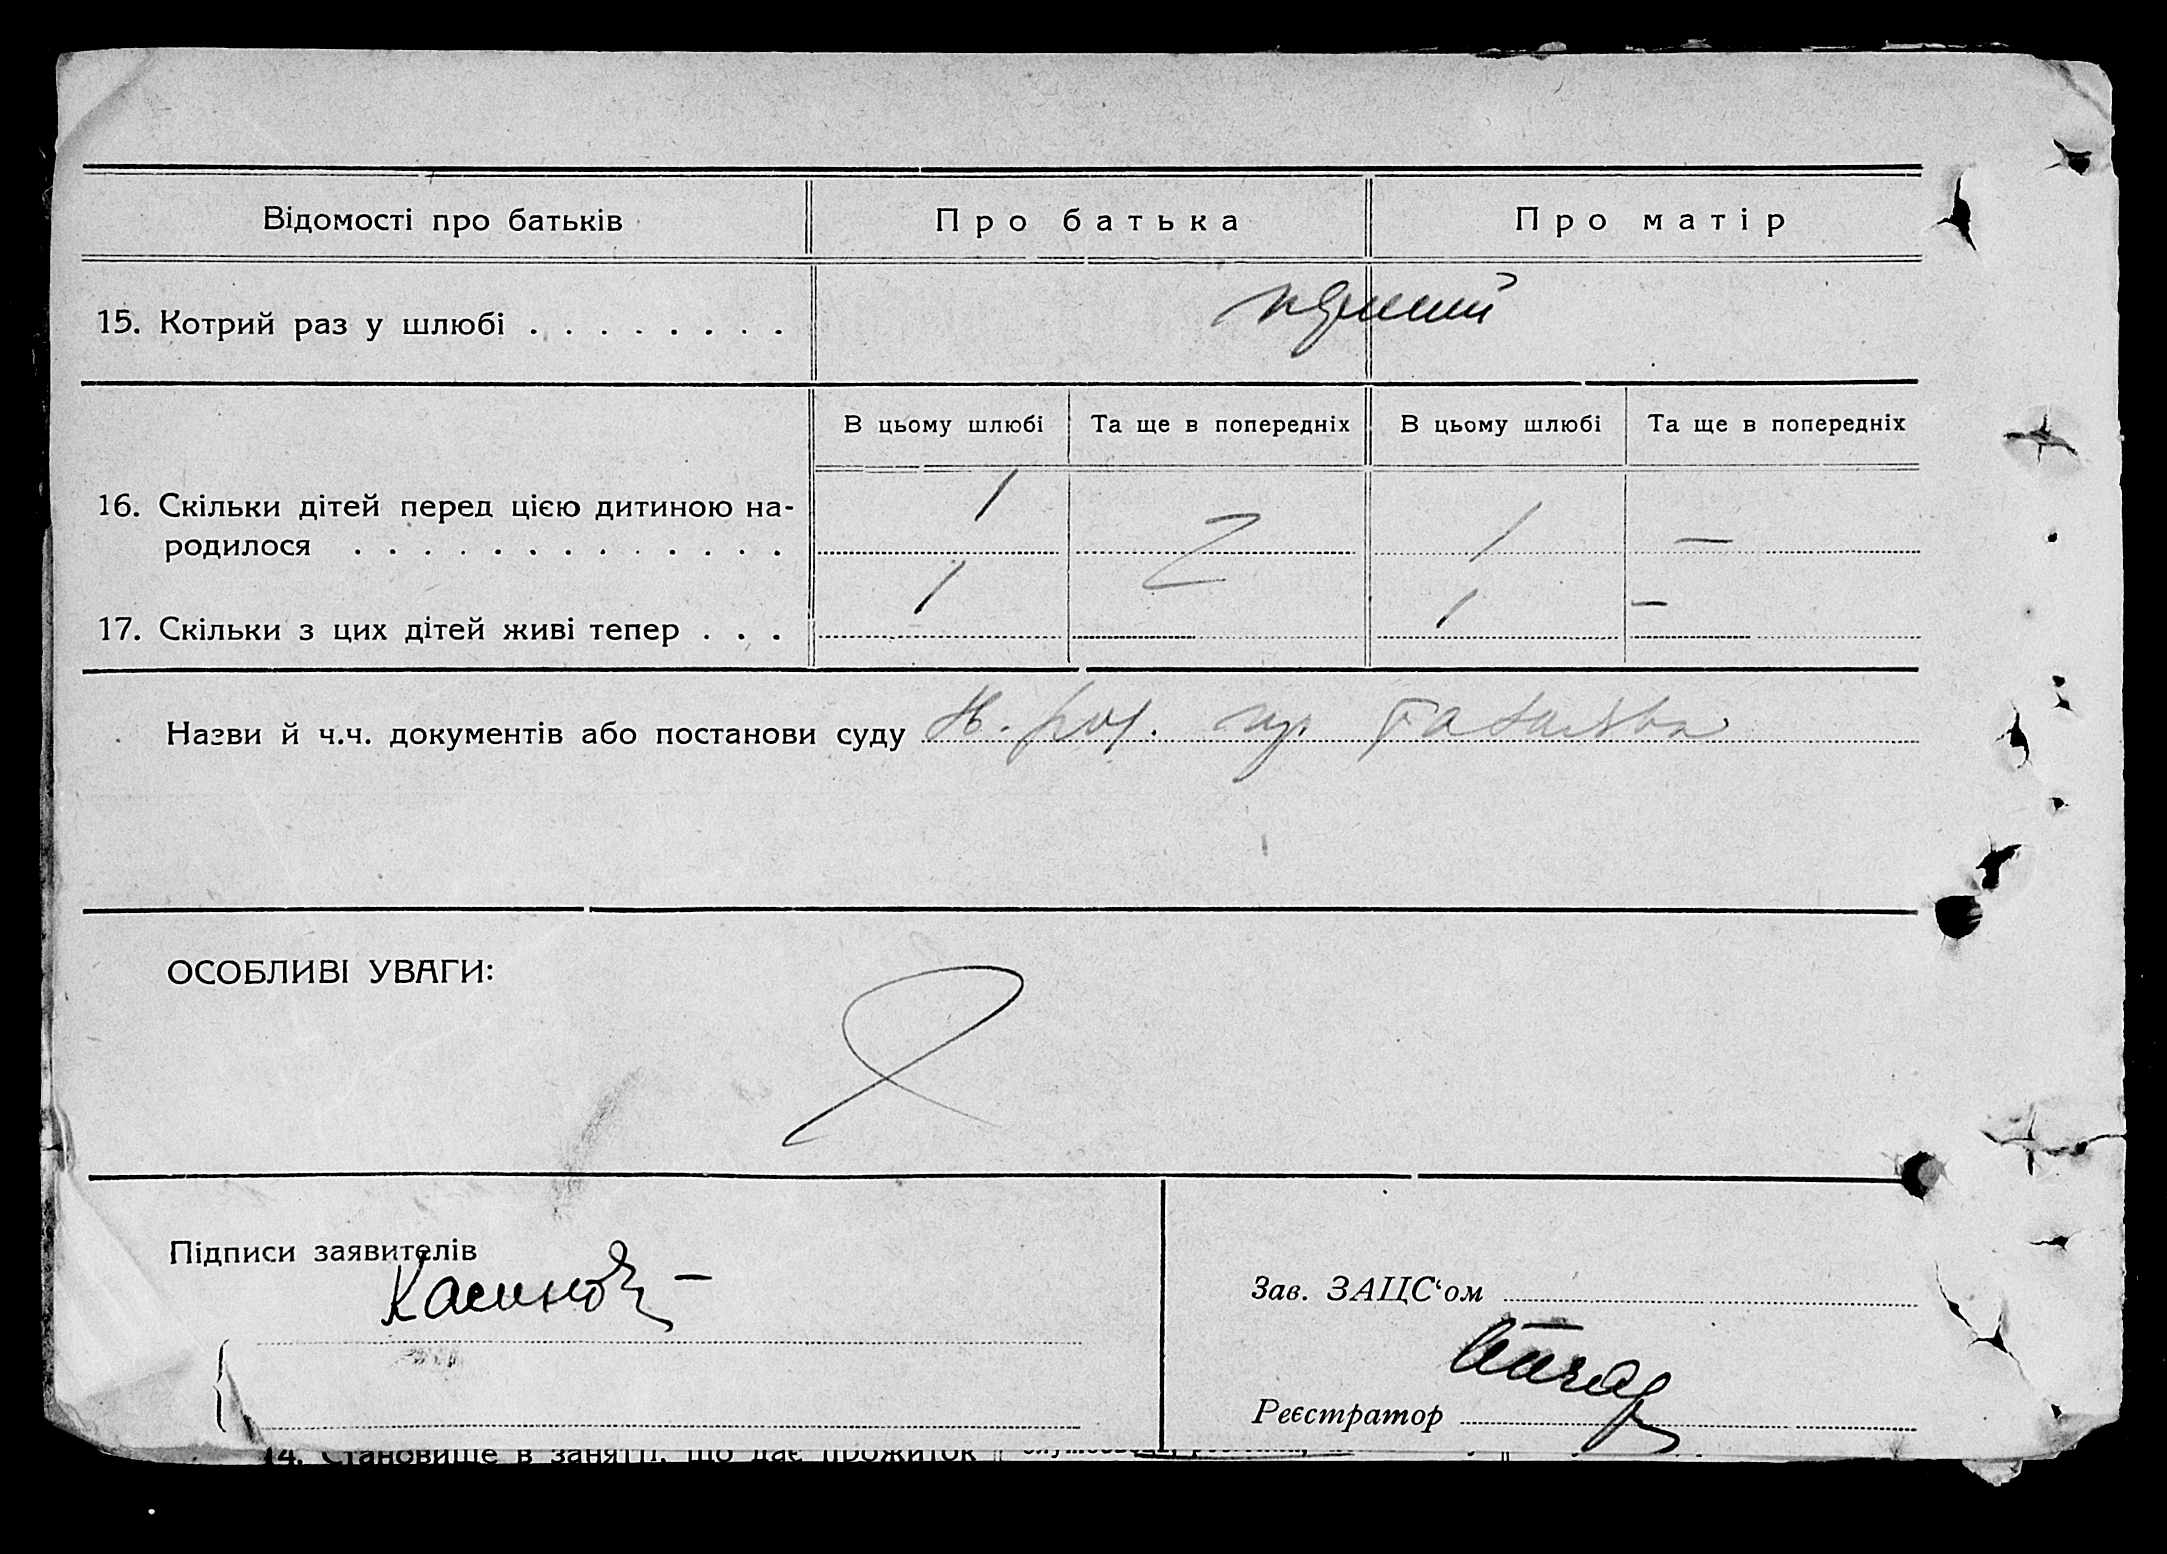 Відомості про батьків Про батька Про матір
15. Котрий раз у шлюбі . . . . . . . .
В цьому шлюбі Та ще в попередніх В цьому шлюбі Та ще в попередніх
16. Скільки дітей перед цією дитиною на-
родилося . . . . . . . . . . . . . 1 2 1 —
17. Скільки з цих дітей живі тепер . . . 1 1 —
Назви й ч.ч. документів або постанови суду
ОСОБЛИВІ УВАГИ:
Підписи заявителів
Зав. ЗАЦС‘ом
Реєстратор
14. Становище в занятті, що дає прожиток